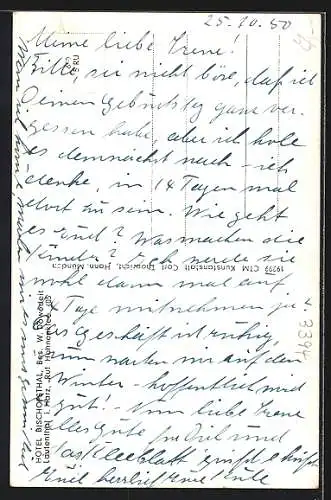 25.10.50
Meine liebe Irene!
Bitte, sei nicht böse, daß ich
Deinen Geburtstag ganz ver-
gessen habe, aber ich hole
es demnächst nach – ich
denke, in 14 Tagen mal
dort zu sein. Wie geht
es Euch? Was machen die
Kinder? Ich werde sie
wohl dann mal auf
Tage mitnehmen ja?
Das Geschäft ist ruhig,
nun warten wir auf den
Winter – hoffentlich wird
gut! – Nun liebe Irene
alles Gute für Dich und
das Kleeblatt
Euch herzlich Eure
HOTEL BISCHOFSTHAL, Bes. W.
Lautenthal i. Harz, Ruf Hahnenklee
19299 CTM Kunstanstalt Carl Thoericht, Hann. Münden
3394